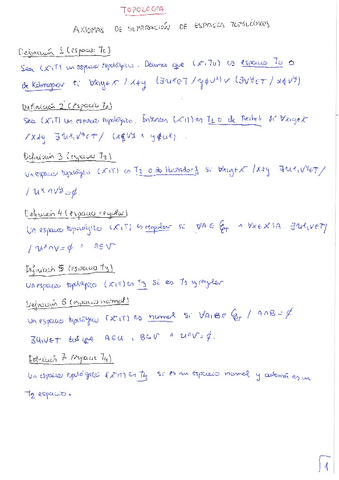 TOPOLOGÍA
AXIOMAS DE SEPARACIÓN DE ESPACIOS TOPOLÓGICOS
Definición 1 (espacio T0)
Sea (X,T) un espacio topológico. Decimos que (X,T) es espacio T0 o
de Kolmogorov si ∀x,y∈X / x≠y
Definición 2 (espacio T1)
Sea (X,T) un espacio topológico. Entonces (X,T) es T1 o de Frechet si ∀x,y∈X
/ x≠y
Definición 3 (espacio T2)
Un espacio topológico (X,T) es T2 o de Hausdorff si ∀x,y∈X / x≠y
Definición 4 (espacio regular)
Un espacio topológico (X,T) es regular si
Definición 5 (espacio T3)
Un espacio topológico (X,T) es T3 si es T1 y regular
Definición 6 (espacio normal)
Un espacio topológico (X,T) es normal si / A∩B=∅
∃U,V∈T tal que A⊆U, B⊆V ∧ U∩V=∅.
Definición 7 (espacio T4)
Un espacio topológico (X,T) es T4 si es un espacio normal y además es un
espacio.
1